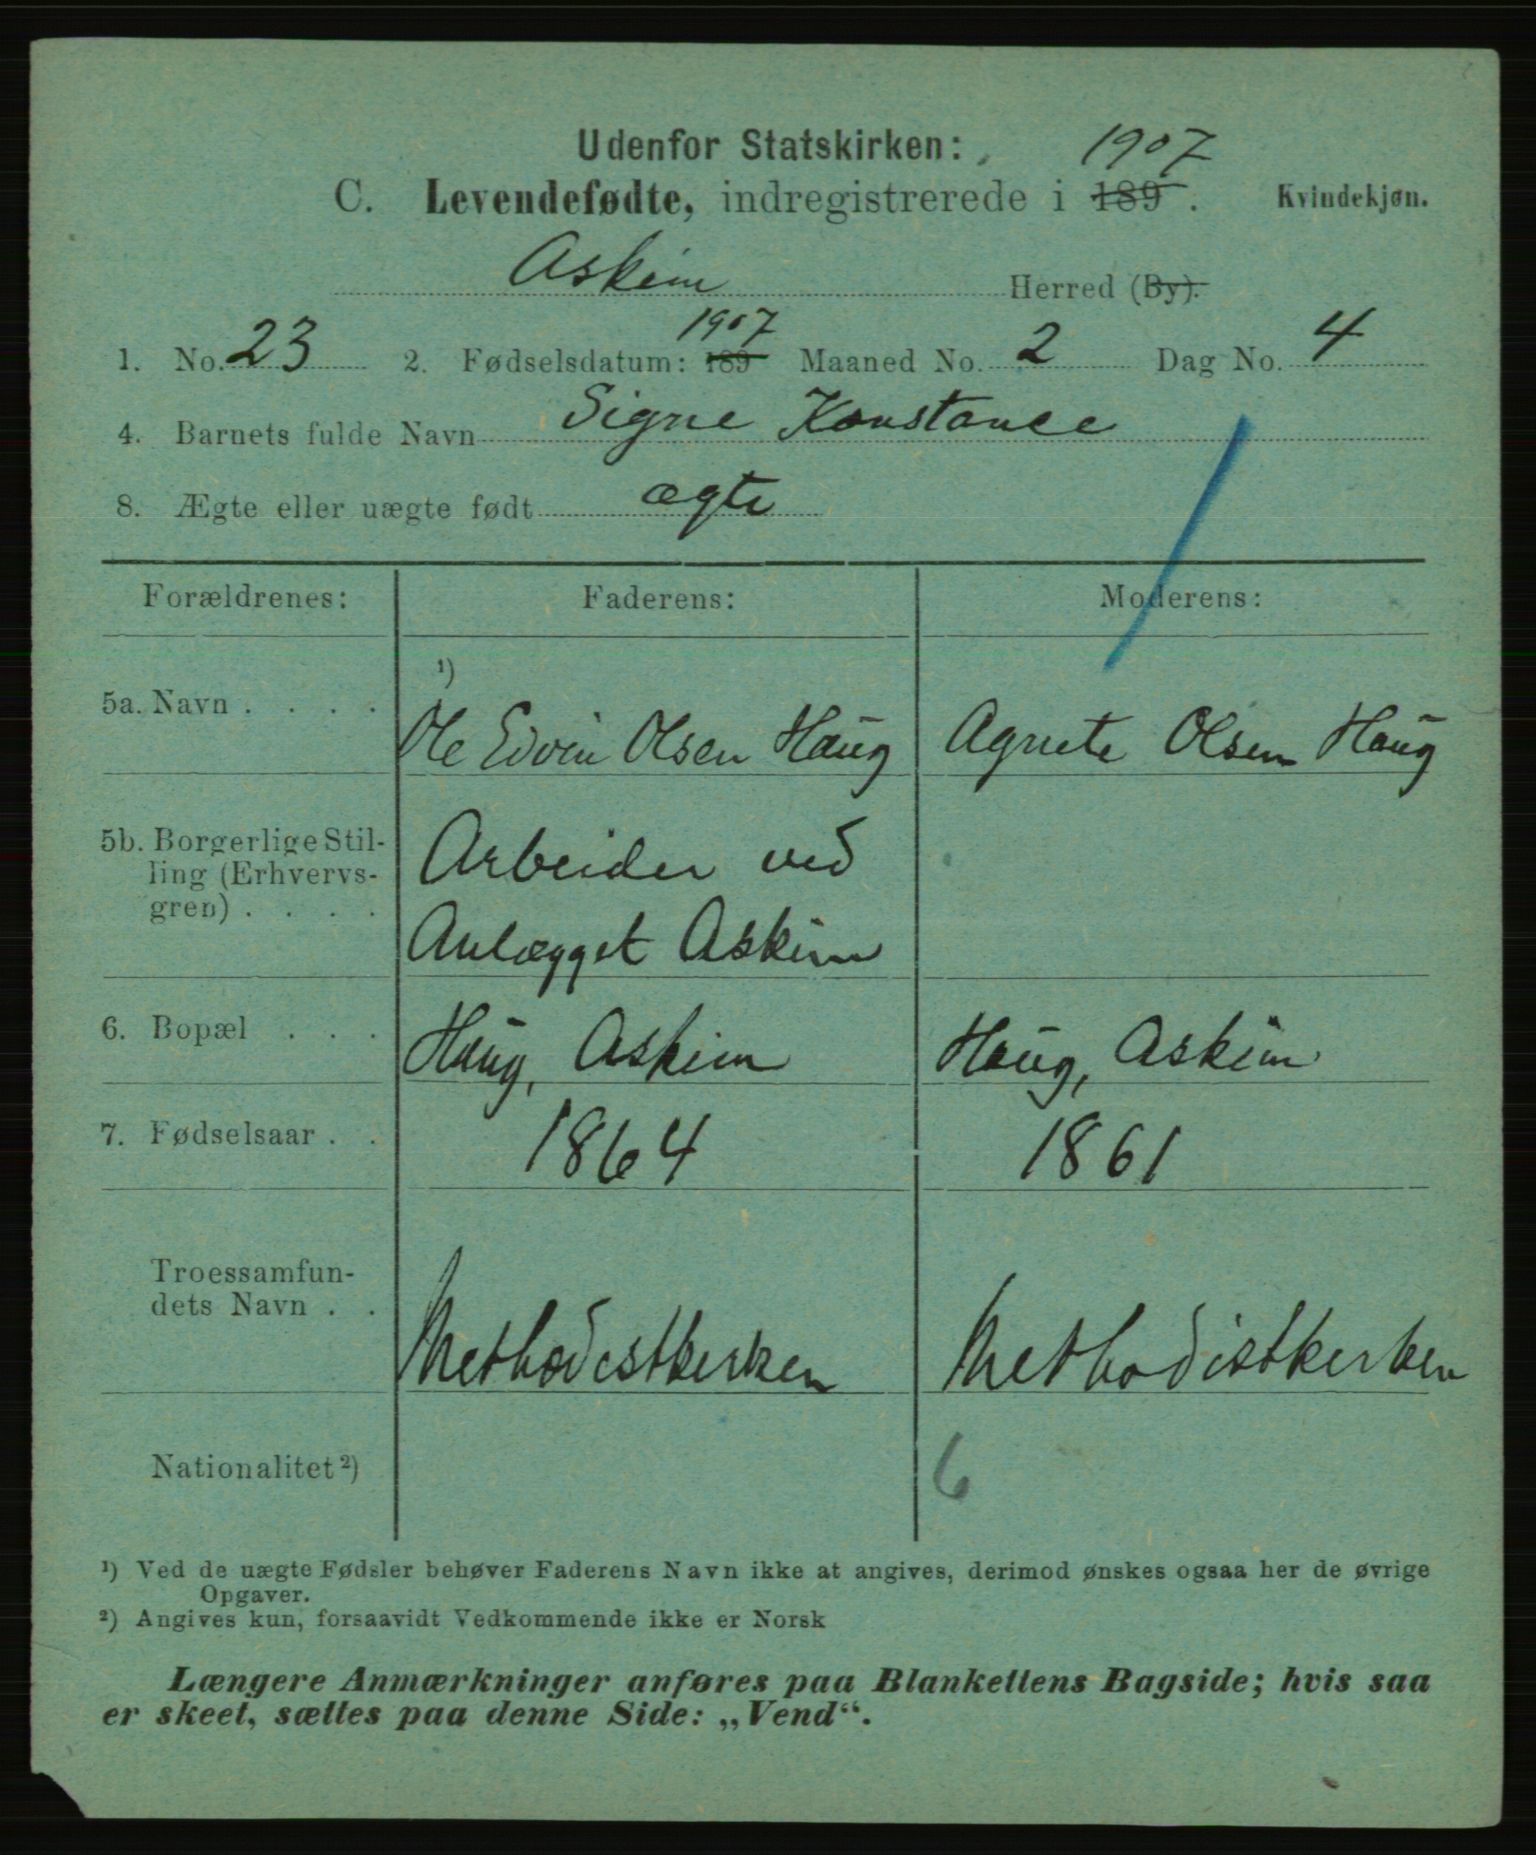 Udenfor Statskirken:
1907
C. Levendefødte, indregistrerede i 189 . Kvindekjøn.
Askim Herred (By).
1907
1. No. 23 2. Fødselsdatum: 189 Maaned No. 2 Dag No. 4
4. Barnets fulde Navn Signe Konstance
8. Ægte eller uægte født ægte
Forældrenes: Faderens: Moderens:
¹)
5a. Navn . . . . Ole Edvin Olsen Haug Agnete Olsen Haug
5b. Borgerlige Stil- Arbeider ved
ling (Erhvervs-
gren) . . . . Anlægget Askim
6. Bopæl . . . Haug, Askim Haug, Askim
7. Fødselsaar . . 1864 1861
Troessamfun-
dets Navn . . Methodistkirken Methodistkirken
Nationalitet ²) 6
¹) Ved de uægte Fødsler behøver Faderens Navn ikke at angives, derimod ønskes ogsaa her de øvrige
Opgaver.
²) Angives kun, forsaavidt Vedkommende ikke er Norsk
Længere Anmærkninger anføres paa Blankettens Bagside; hvis saa
er skeet, sættes paa denne Side: „Vend“.